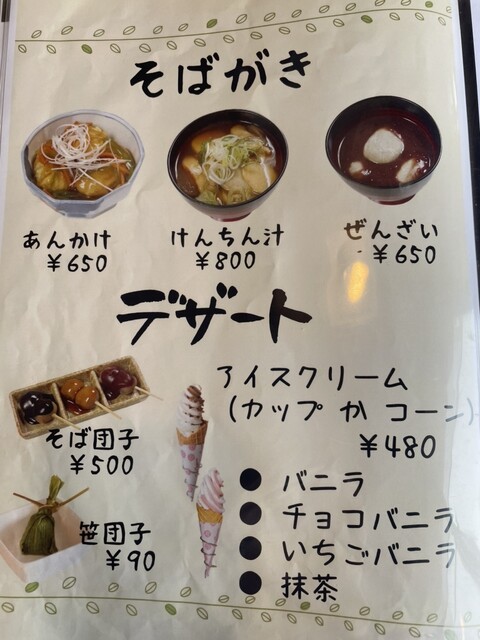 そばがき
あんかけ
¥650
けんちん汁
¥800
ぜんざい
¥650
デザート
そば団子
¥500
笹団子
¥90
アイスクリーム
(カップ か コーン)
¥480
● バニラ
● チョコバニラ
● いちごバニラ
● 抹茶